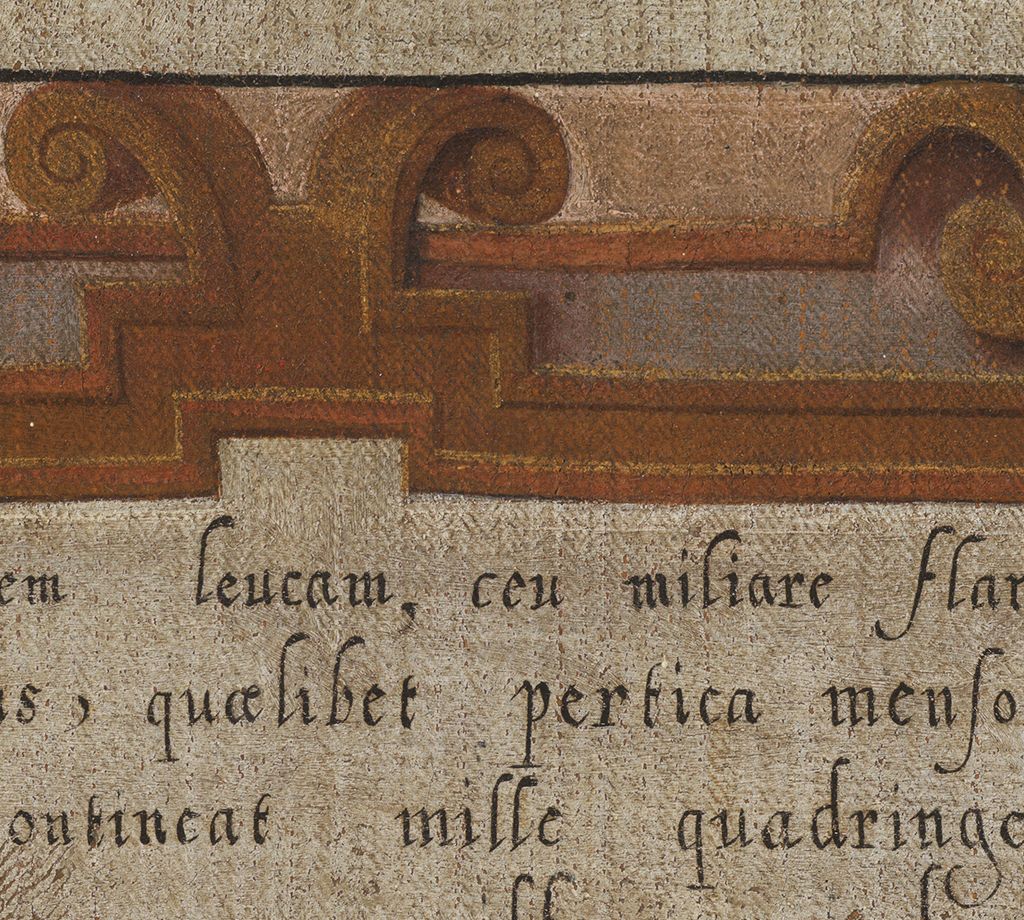 em leucam, ceu miliare Flan
us, quælibet pertica menſo
ontineat mille quadringe